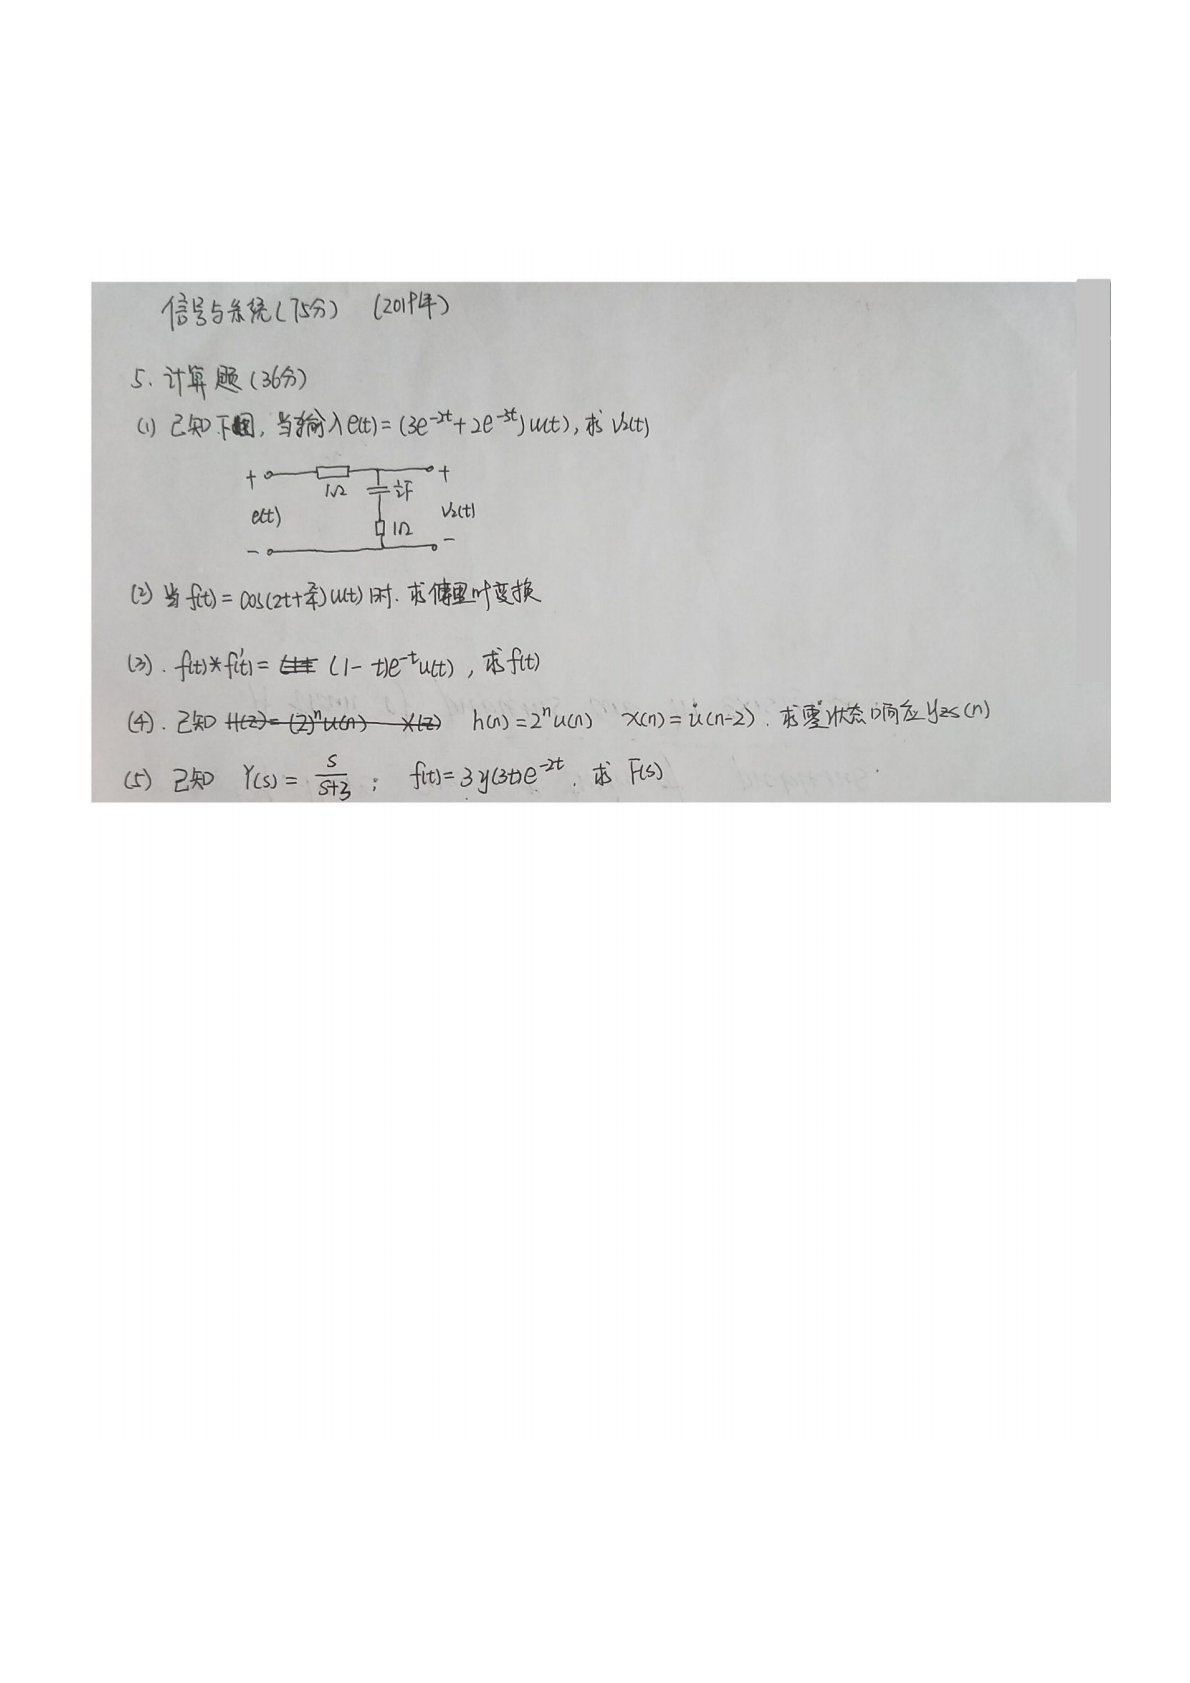 信号与系统(75分) (2019年)
5、计算题(36分)
(1) 已知下图, 当输入e(t)=(3e^{-2t}+2e^{-3t})u(t), 求V₂(t)
+ 1Ω ½F +
e(t) V₂(t)
1Ω
- -
(2) 当f(t)=cos(2t+π/4)u(t)时. 求傅里叶变换
(3). f(t)*f'(t)= (1-t)e^{-t}u(t), 求f(t)
(4). 已知 H(z)=(2)^n u(n) X(z) h(n)=2^n u(n) x(n)=u(n-2). 求零状态响应yzs(n)
(5) 已知 Y(s)= s/(s+3) ; f(t)=3y(3t)e^{-2t}. 求 F(s)